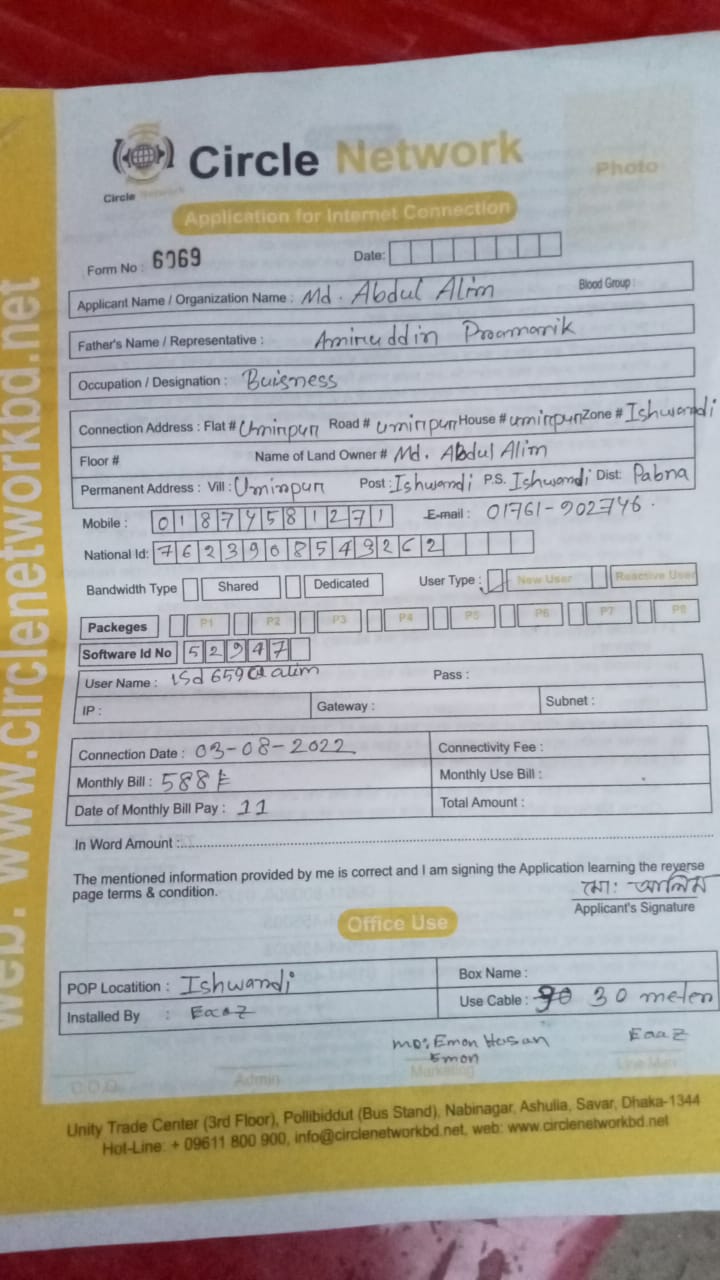 Circle Network
Circle Network
Photo
Application for Internet Connection
Form No : 6069 Date:
Applicant Name / Organization Name : Md. Abdul Alim Blood Group :
Father's Name / Representative : Amiruddin Proamanik
Occupation / Designation : Buisness
Connection Address : Flat # Umirpur Road # umirpur House # umirpur Zone # Ishwardi
Floor # Name of Land Owner # Md. Abdul Alim
Permanent Address : Vill : Umirpur Post : Ishwardi P.S. Ishwardi Dist: Pabna
Mobile : 01874581271 E-mail : 01761-902746.
National Id: 7623908543262
Bandwidth Type Shared Dedicated User Type : New User Reactive User
Packeges P1 P2 P3 P4 P5 P6 P7 P8
Software Id No 52947
User Name : isd659 alim Pass :
IP : Gateway : Subnet :
Connection Date : 03-08-2022 Connectivity Fee :
Monthly Bill : 588 Monthly Use Bill :
Date of Monthly Bill Pay : 11 Total Amount :
In Word Amount :
The mentioned information provided by me is correct and I am signing the Application learning the reverse
page terms & condition.
মো: আলিম
Applicant's Signature
Office Use
POP Locatition : Ishwardi Box Name :
Installed By : Use Cable : 30 meter
MD: Emon Hasan
Emon
C.D.D. Admin Marketing Line Man
Unity Trade Center (3rd Floor), Pollibiddut (Bus Stand), Nabinagar, Ashulia, Savar, Dhaka-1344
Hot-Line: + 09611 800 900, info@circlenetworkbd.net, web: www.circlenetworkbd.net
web: www.circlenetworkbd.net